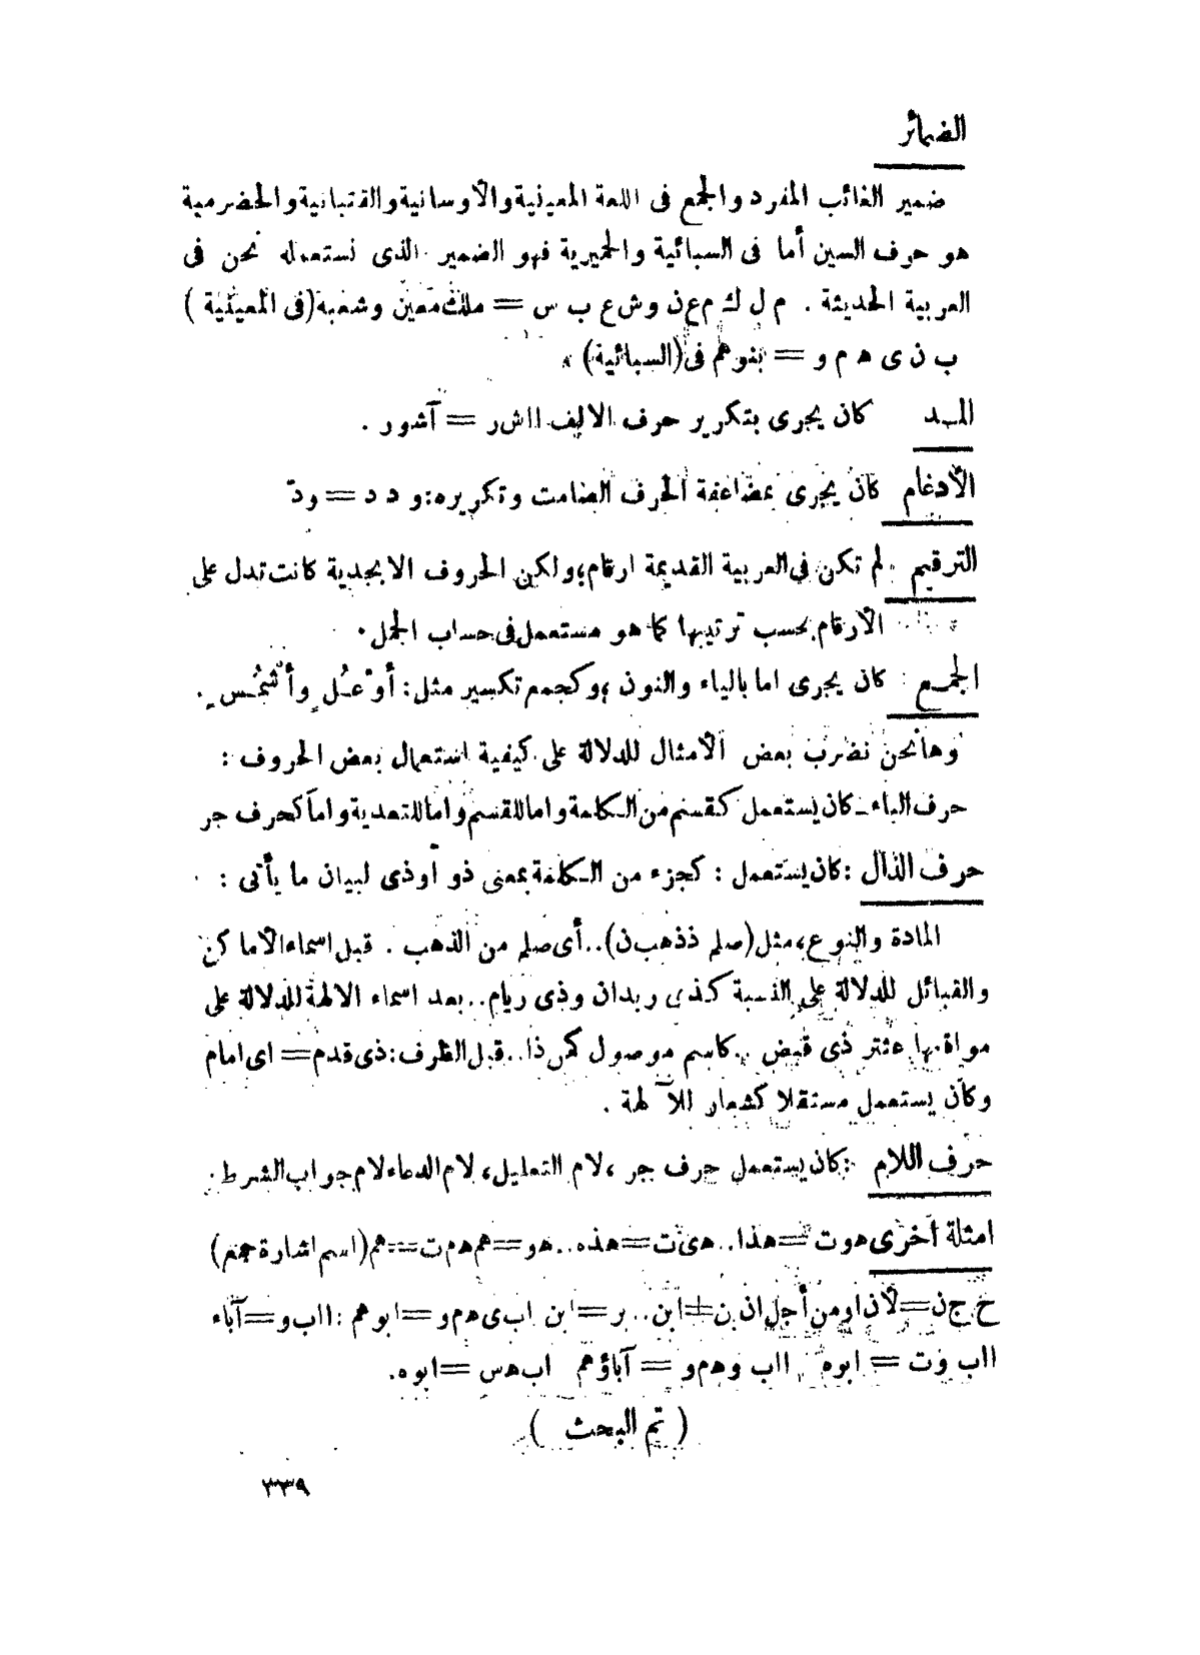 الضمائر
ضمير الغائب المفرد والجمع فى اللغة المعينية والأوسانية والقتبانية والحضرمية
هو حرف السين أما فى السبائية والحميرية فهو الضمير الذى نستعمله نحن فى
العربية الحديثة . م ل ك م ع ن و ش ع ب س = ملك معين وشعبه (فى المعينية )
ب ن ى ه م و = بنوهم فى (السبائية)
المد كان يجرى بتكرير حرف الالف ااشر = آشور .
الأدغام كان يجرى بمضاعفة الحرف الصامت وتكريره: و د د = ودّ
الترقيم . لم تكن فى العربية القديمة ارقام؛ ولكن الحروف الابجدية كانت تدل على
الأرقام بحسب ترتيبها كما هو مستعمل فى حساب الجمل .
الجمع : كان يجرى اما بالياء والنون ؛ وكجمع تكسير مثل: أوْعُل وأشْمُس .
وهانحن نضرب بعض الأمثال للدلالة على كيفية استعمال بعض الحروف :
حرف الباء ـ كان يستعمل كقسم من الكلمة واما للقسم واما للتعدية واما كحرف جر
حرف الذال : كان يستعمل : كجزء من الكلمة بمعنى ذو أوذى لبيان ما يأتى :
المادة والنوع، مثل (صلم ذذهبن) .. أى صلم من الذهب . قبل اسماء الأماكن
والقبائل للدلالة على النسبة كذى ريدان وذى ريام .. بعد اسماء الالهة للدلالة على
مواقعها عثتر ذى قبض .. كاسم موصول كمن ذا .. قبل الظرف: ذى قدم = اى امام
وكان يستعمل مستقلا كشعار للآلهة .
حرف اللام : كان يستعمل حرف جر ، لام التعليل، لام الدعاء لام جواب الشرط .
امثلة أخرى هوت = هذا .. هى ت = هذه .. هو = هم هم ت = هم (اسم اشارة جمع)
ح ج ن = لأن او من أجل ان بن = ابن .. بر = ابن اب ى هم و = ابوهم : ااب و = آباء
ااب وت = ابوه ااب وهم و = آباؤهم اب هس = ابوه.
( تم البحث )
٣٣٩